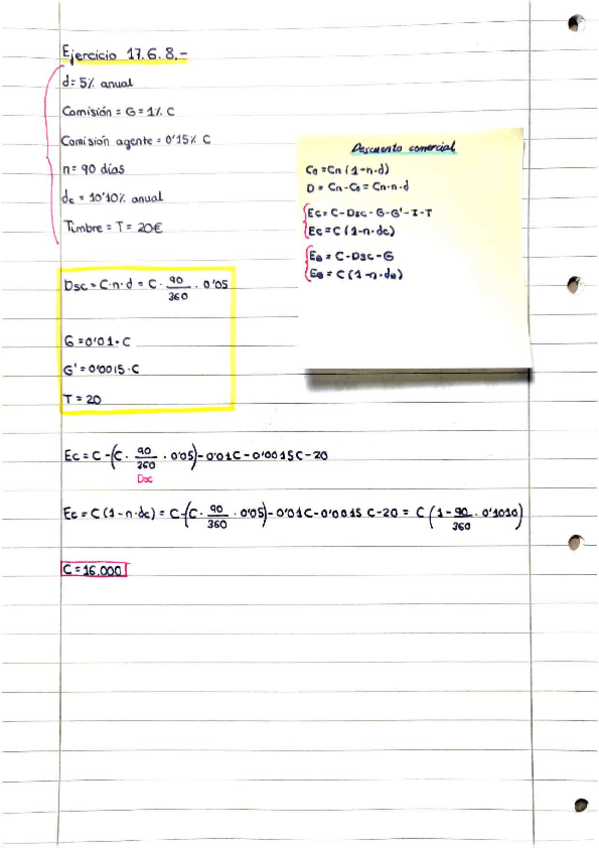 Ejercicio 17.6.8.-
d= 5% anual
Comisión = G = 1% C
Comisión agente = 0'15% C
n= 90 días
dc = 10'10% anual
Timbre = T = 20€
Descuento comercial
Co = Cn (1-n·d)
D = Cn-Co = Cn·n·d
Ec = C-Dsc-G-G'-I-T
Ec = C (1-n·dc)
Eb = C-Dsc-G
Eb = C (1-n·db)
Dsc = C·n·d = C · 90/360 · 0'05
G = 0'01·C
G' = 0'0015·C
T = 20
Ec = C - (C · 90/360 · 0'05) - 0'01C - 0'0015C - 20
Dsc
Ec = C (1-n·dc) = C - (C · 90/360 · 0'05) - 0'01C - 0'0015 C - 20 = C (1 - 90/360 · 0'1010)
C = 16.000